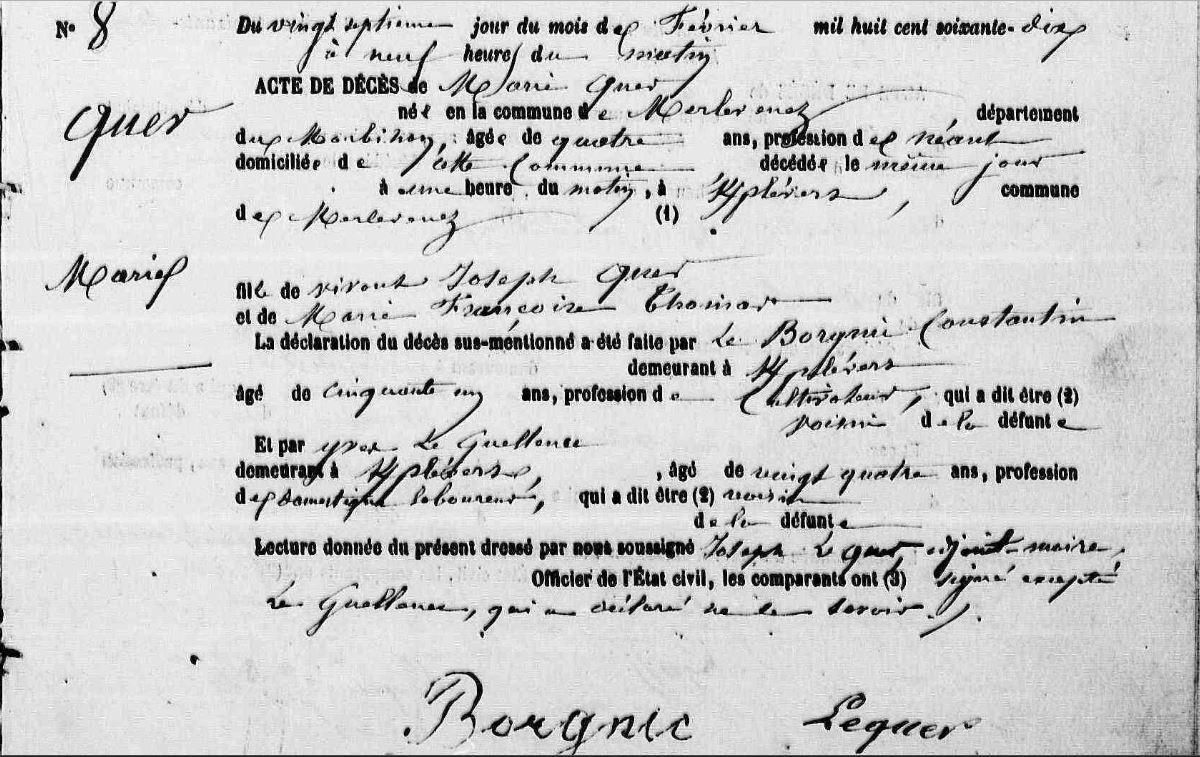 N° 8
Du vingt septieme jour du mois de Février mil huit cent soixante-dix
à neuf heures du matin
ACTE DE DÉCÈS de Marie Quer
Quer
née en la commune de Merlevenez département
du Morbihan, âgée de quatre ans, profession de néant
domiciliée de cette Commune décédée le même jour
à une heure du matin, à commune
de Merlevenez (1)
Marie
fille de vivant Joseph Quer
et de Marie Françoise Thomas
La déclaration du décès sus-mentionné a été faite par Le Borgnic Constantin
demeurant à
âgé de cinquante un ans, profession de Cultivateur, qui a dit être (2)
voisin de la défunte
Et par yves Le Guellenec
demeurant à , âgé de vingt quatre ans, profession
de domestique laboureur, qui a dit être (2) voisin
de la défunte
Lecture donnée du présent dressé par nous soussigné Joseph Le quer, adjoint maire,
Officier de l'État civil, les comparants ont (3) signé excepté
Le Guellenec, qui a déclaré ne le savoir.
Borgnic Lequer